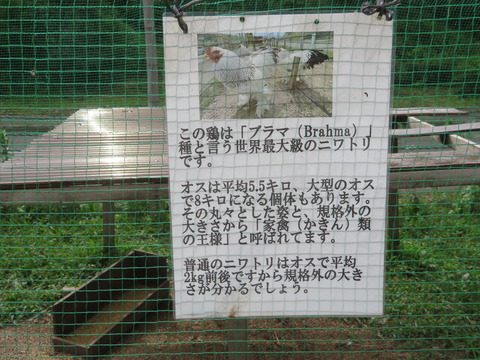 この鶏は「ブラマ（Brahma）」
種と言う世界最大級のニワトリ
です。
オスは平均5.5キロ、大型のオス
で8キロになる個体もあります。
その丸々とした姿と、規格外の
大きさから「家禽（かきん）類
の王様」と呼ばれてます。
普通のニワトリはオスで平均
2kg前後ですから規格外の大き
さが分かるでしょう。